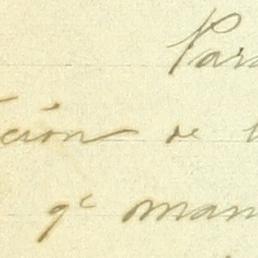 Para
ción de l
qe man